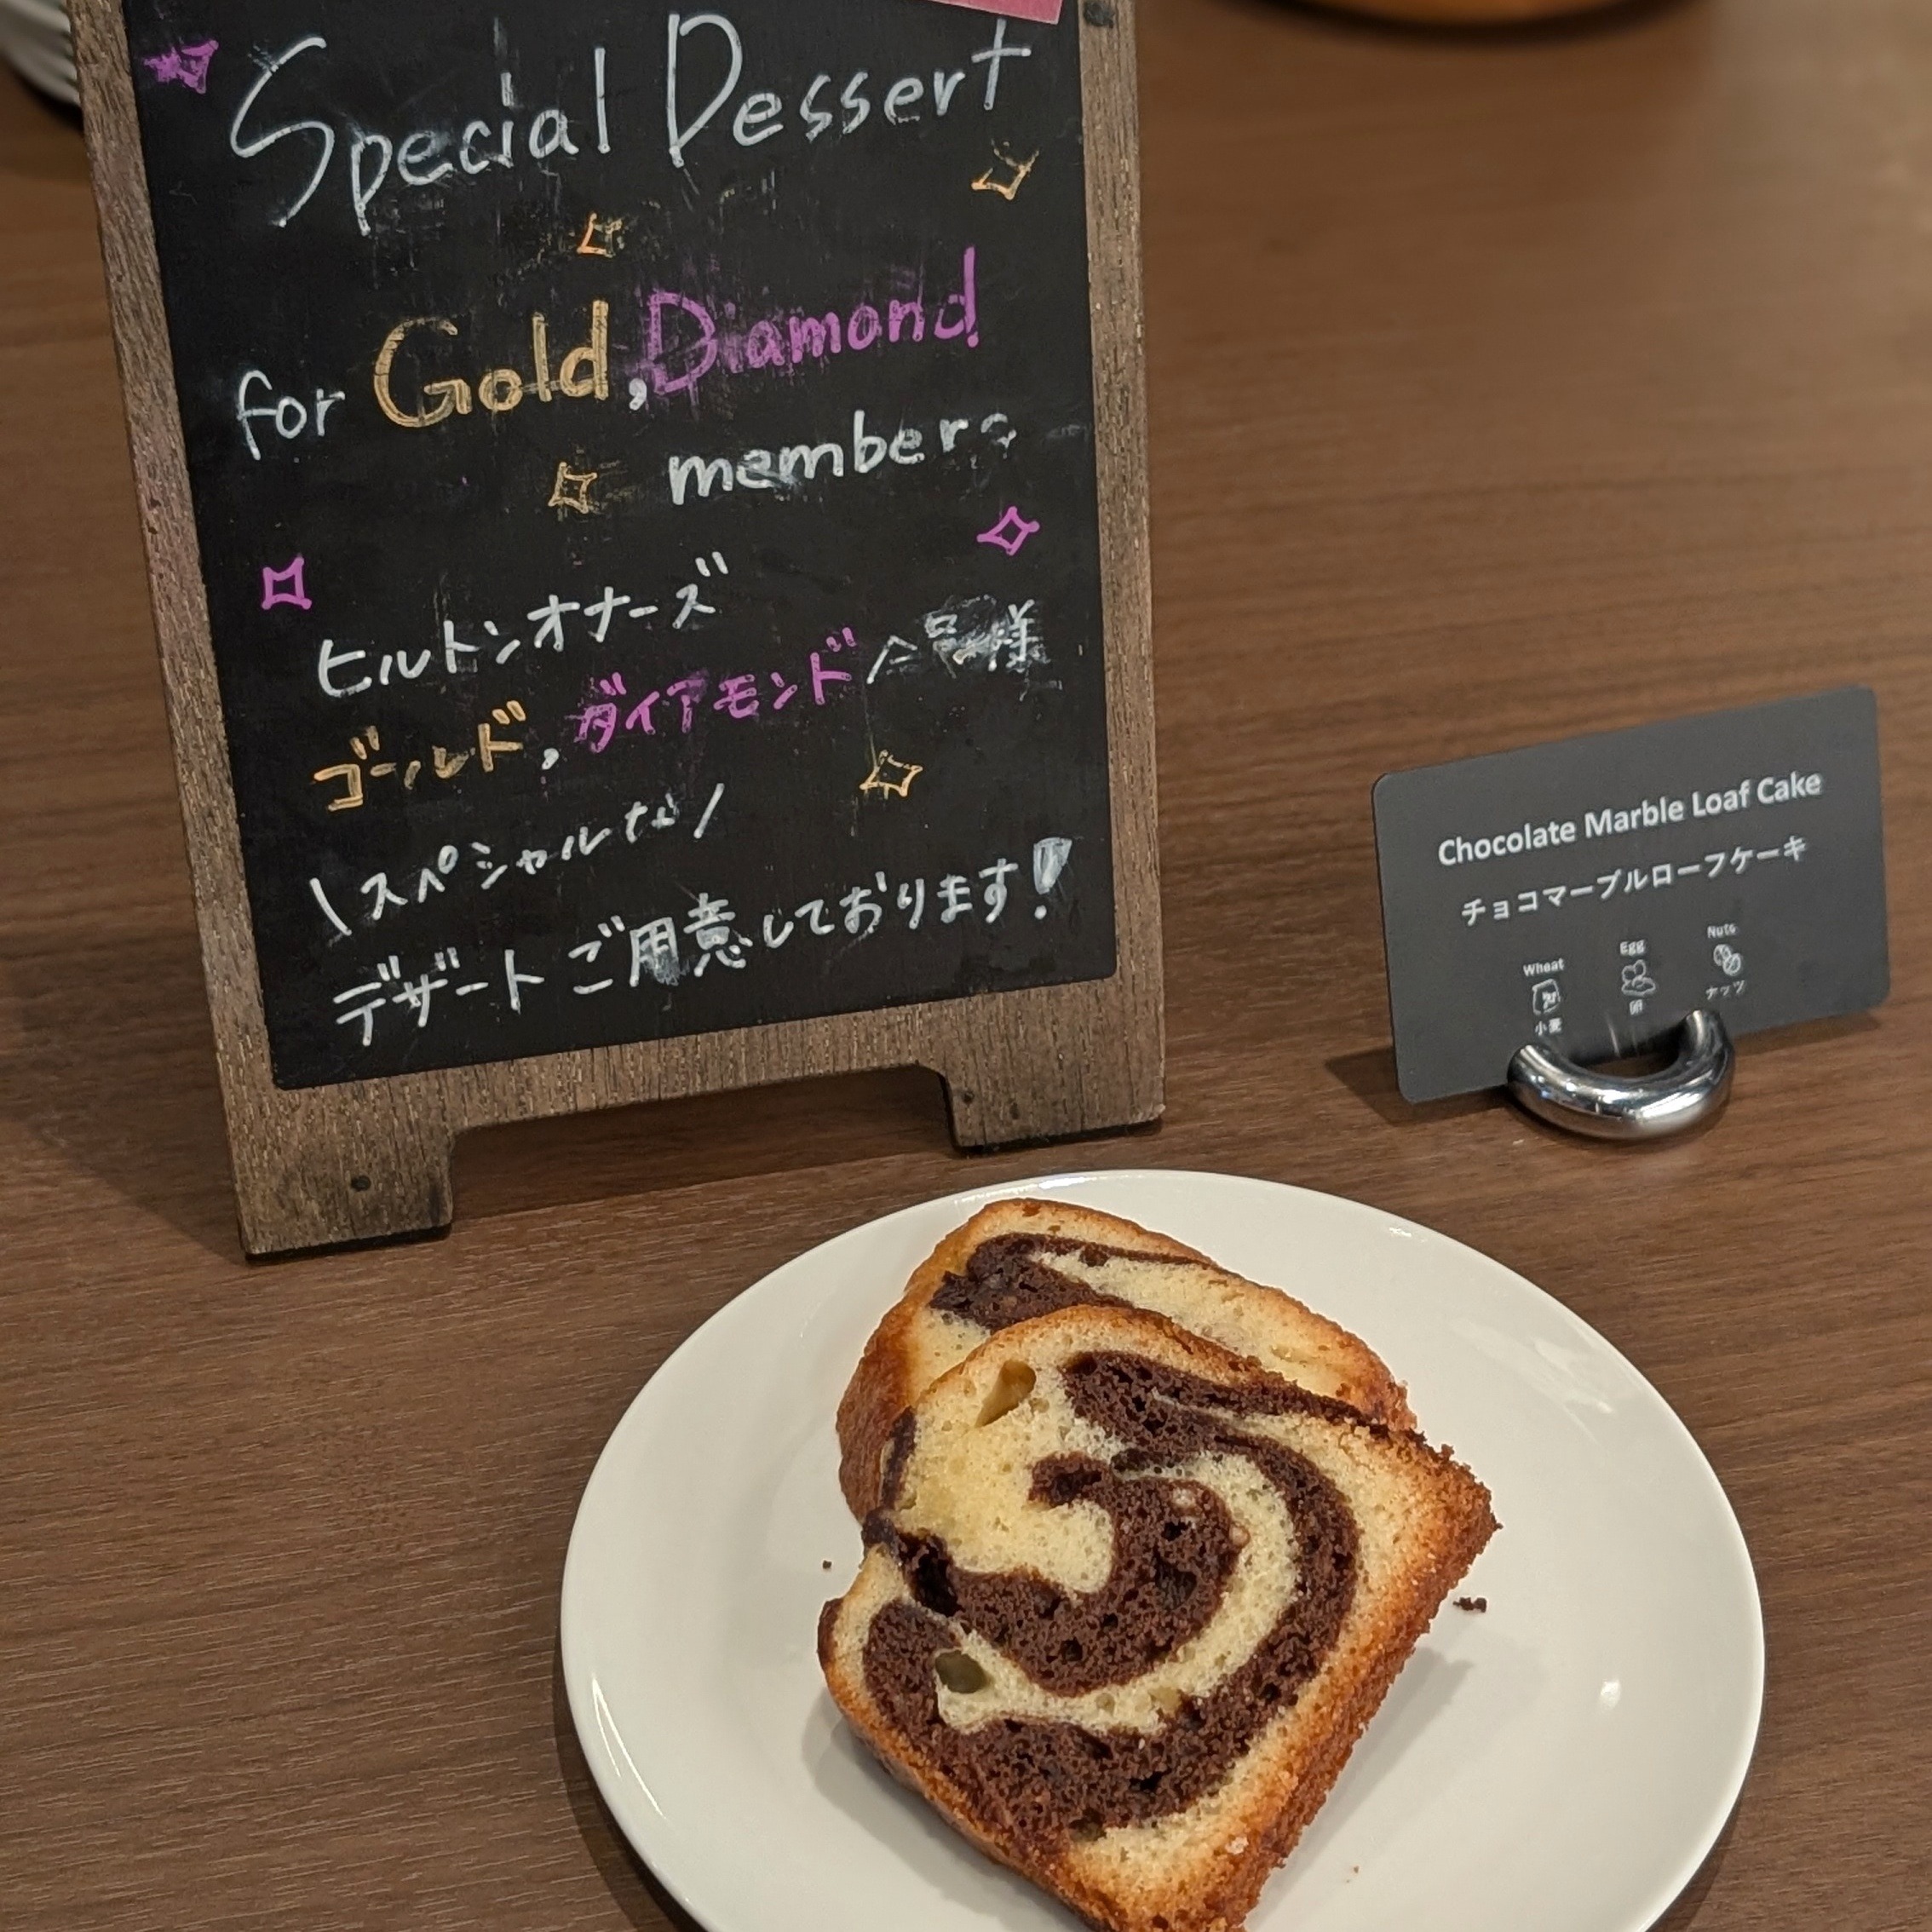 Special Dessert
for Gold, Diamond
members
ヒルトンオナーズ
ゴールド,ダイアモンド会員様
\スペシャルな/
デザートご用意しております!
Chocolate Marble Loaf Cake
チョコマーブルローフケーキ
Wheat Egg Nuts
小麦 卵 ナッツ